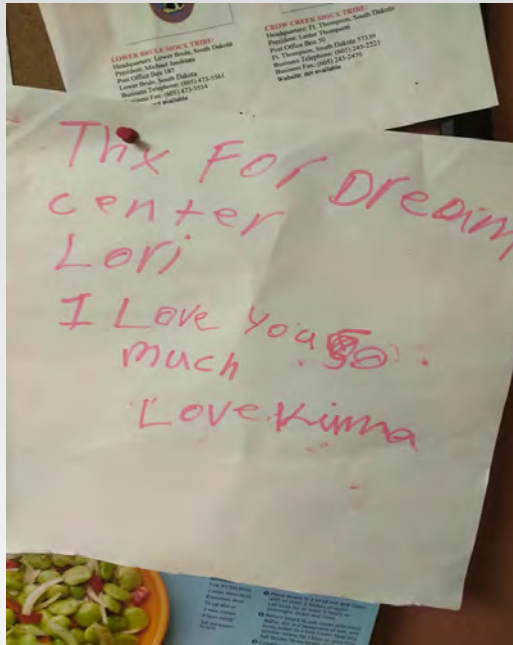 LOWER BRULE SIOUX TRIBE:
Headquarters: Lower Brule, South Dakota
President: Michael Jandreau
Post Office Box 187
Lower Brule, South Dakota
Business Telephone: (605) 473-5561
Business Fax: (605) 473-5554
not available
CROW CREEK SIOUX TRIBE:
Headquarters: Ft. Thompson, South Dakota
President: Lester Thompson
Post Office Box 50
Ft. Thompson, South Dakota 57339
Business Telephone: (605) 245-2221
Business Fax: (605) 245-2470
Website: not available
Thx For Dream
center
Lori
I Love You so
much
Love Kinna